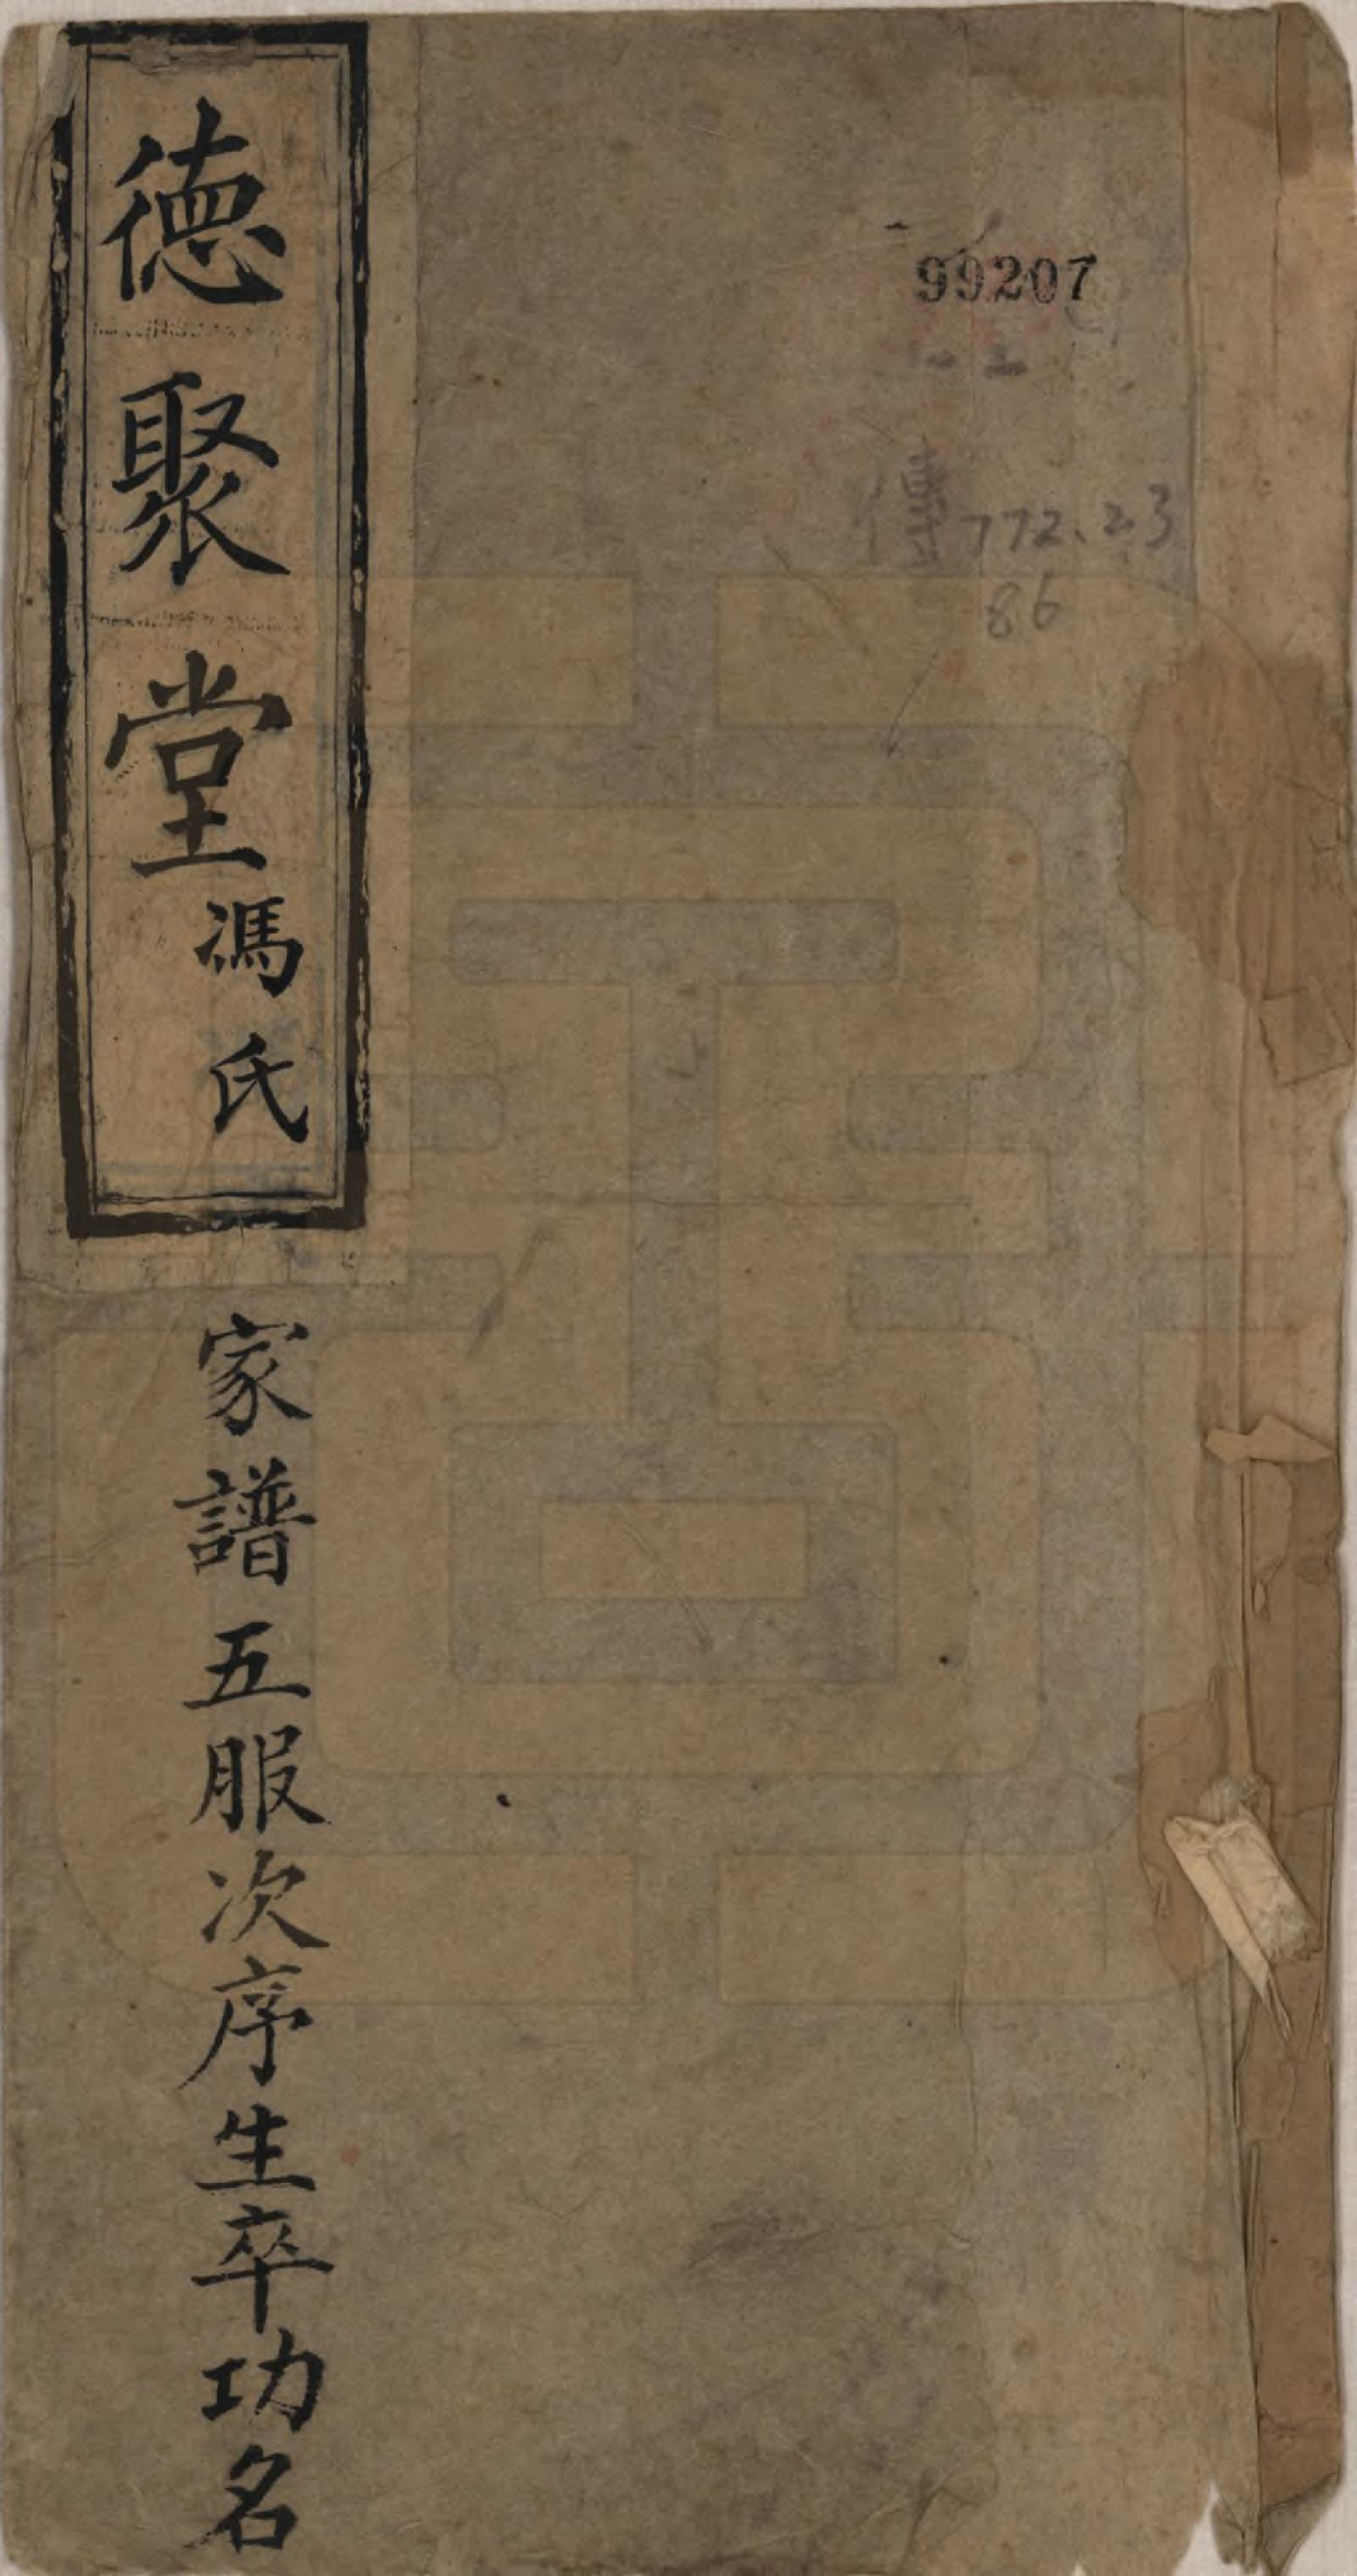 德聚堂馮氏
家譜五服次序生卒功名
99207
傳772.23
86